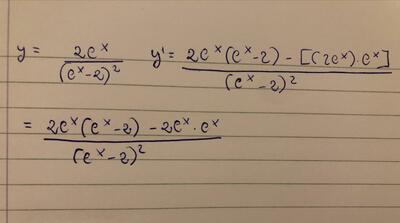 y = 2e^x / (e^x-2)^2    y' = 2e^x(e^x-2) - [(2e^x)·e^x] / (e^x-2)^2
= 2e^x(e^x-2) - 2e^x·e^x / (e^x-2)^2